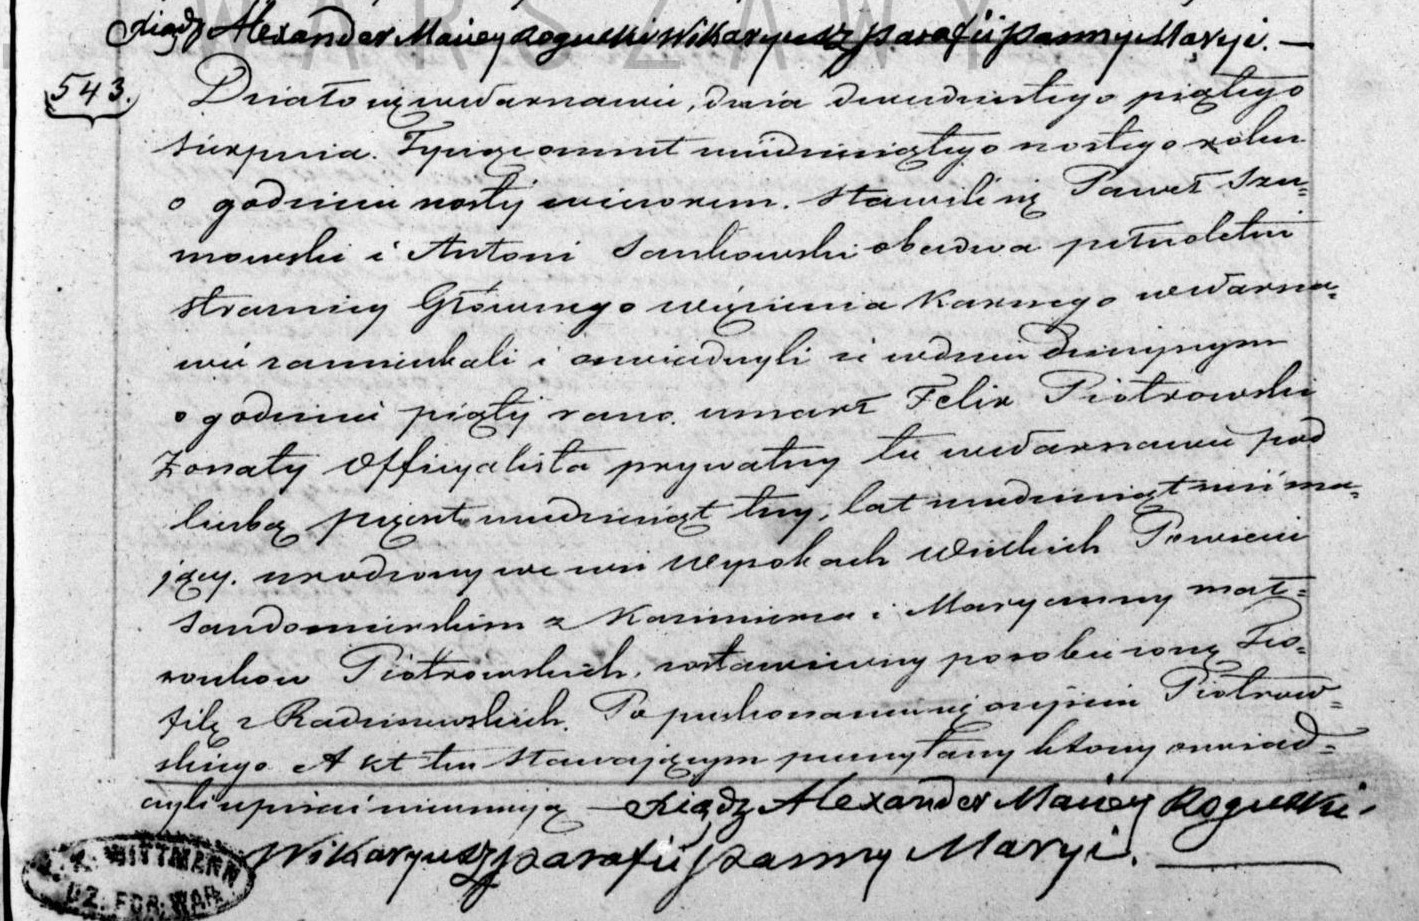 WARSZAWY
Xiądz Alexander Maciey Rogulski Wikaryusz Parafii Panny Maryi. —
543. Działo się w Warszawie, dnia dwudziestego piątego
sierpnia. Tysiąc osmset sześćdziesiątego szóstego roku
o godzinie szósty wieczorem. Stawili się Paweł Szu=
mowski i Antoni Sankowski obadwa pełnoletni
strażnicy Głównego więzienia Karnego w Warsza=
wie zamieszkali i oswiadczyli iż w dniu dzisiejszym
o godzinie piąty rano. umarł Felix Piotrowski
żonaty Officyalista prywatny tu w Warszawie pod
liczbą pięćset sześćdziesiąt trzy, lat sześćdziesiąt sześć ma=
jący. urodzony we wsi Wysokach Wielkich Powiecie
Sandomierskim z Kazimierza i Maryanny mał=
żonków Piotrowskich, zostawiwszy po sobie żonę Teo=
filę z Radziszewskich. Po przekonaniu się o zejściu Piotrow=
skiego. Akt ten stawającym przeczytany którzy oswiad=
czyli iż pisać nieumieją — Xiądz Alexander Maciey Rogulski
Wikaryusz Parafii Panny Maryi. —
WITTMANN